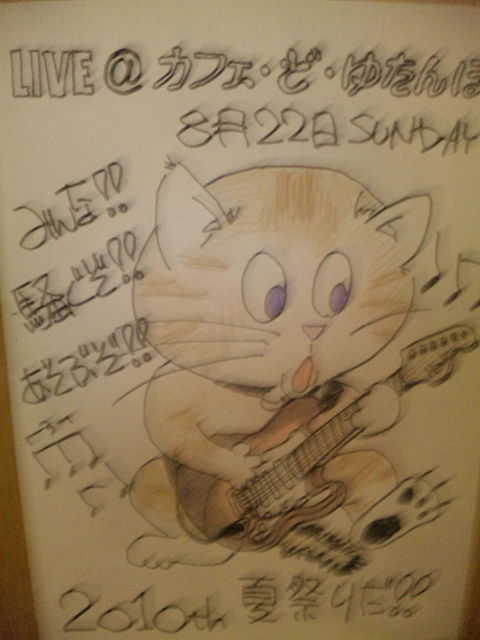 LIVE @ カフェ・ど・ゆたんぽ
8月22日 SUNDAY
みんな!!
騒ぐぞ!!
あそぶぞ!!
2010th 夏祭りだ!!